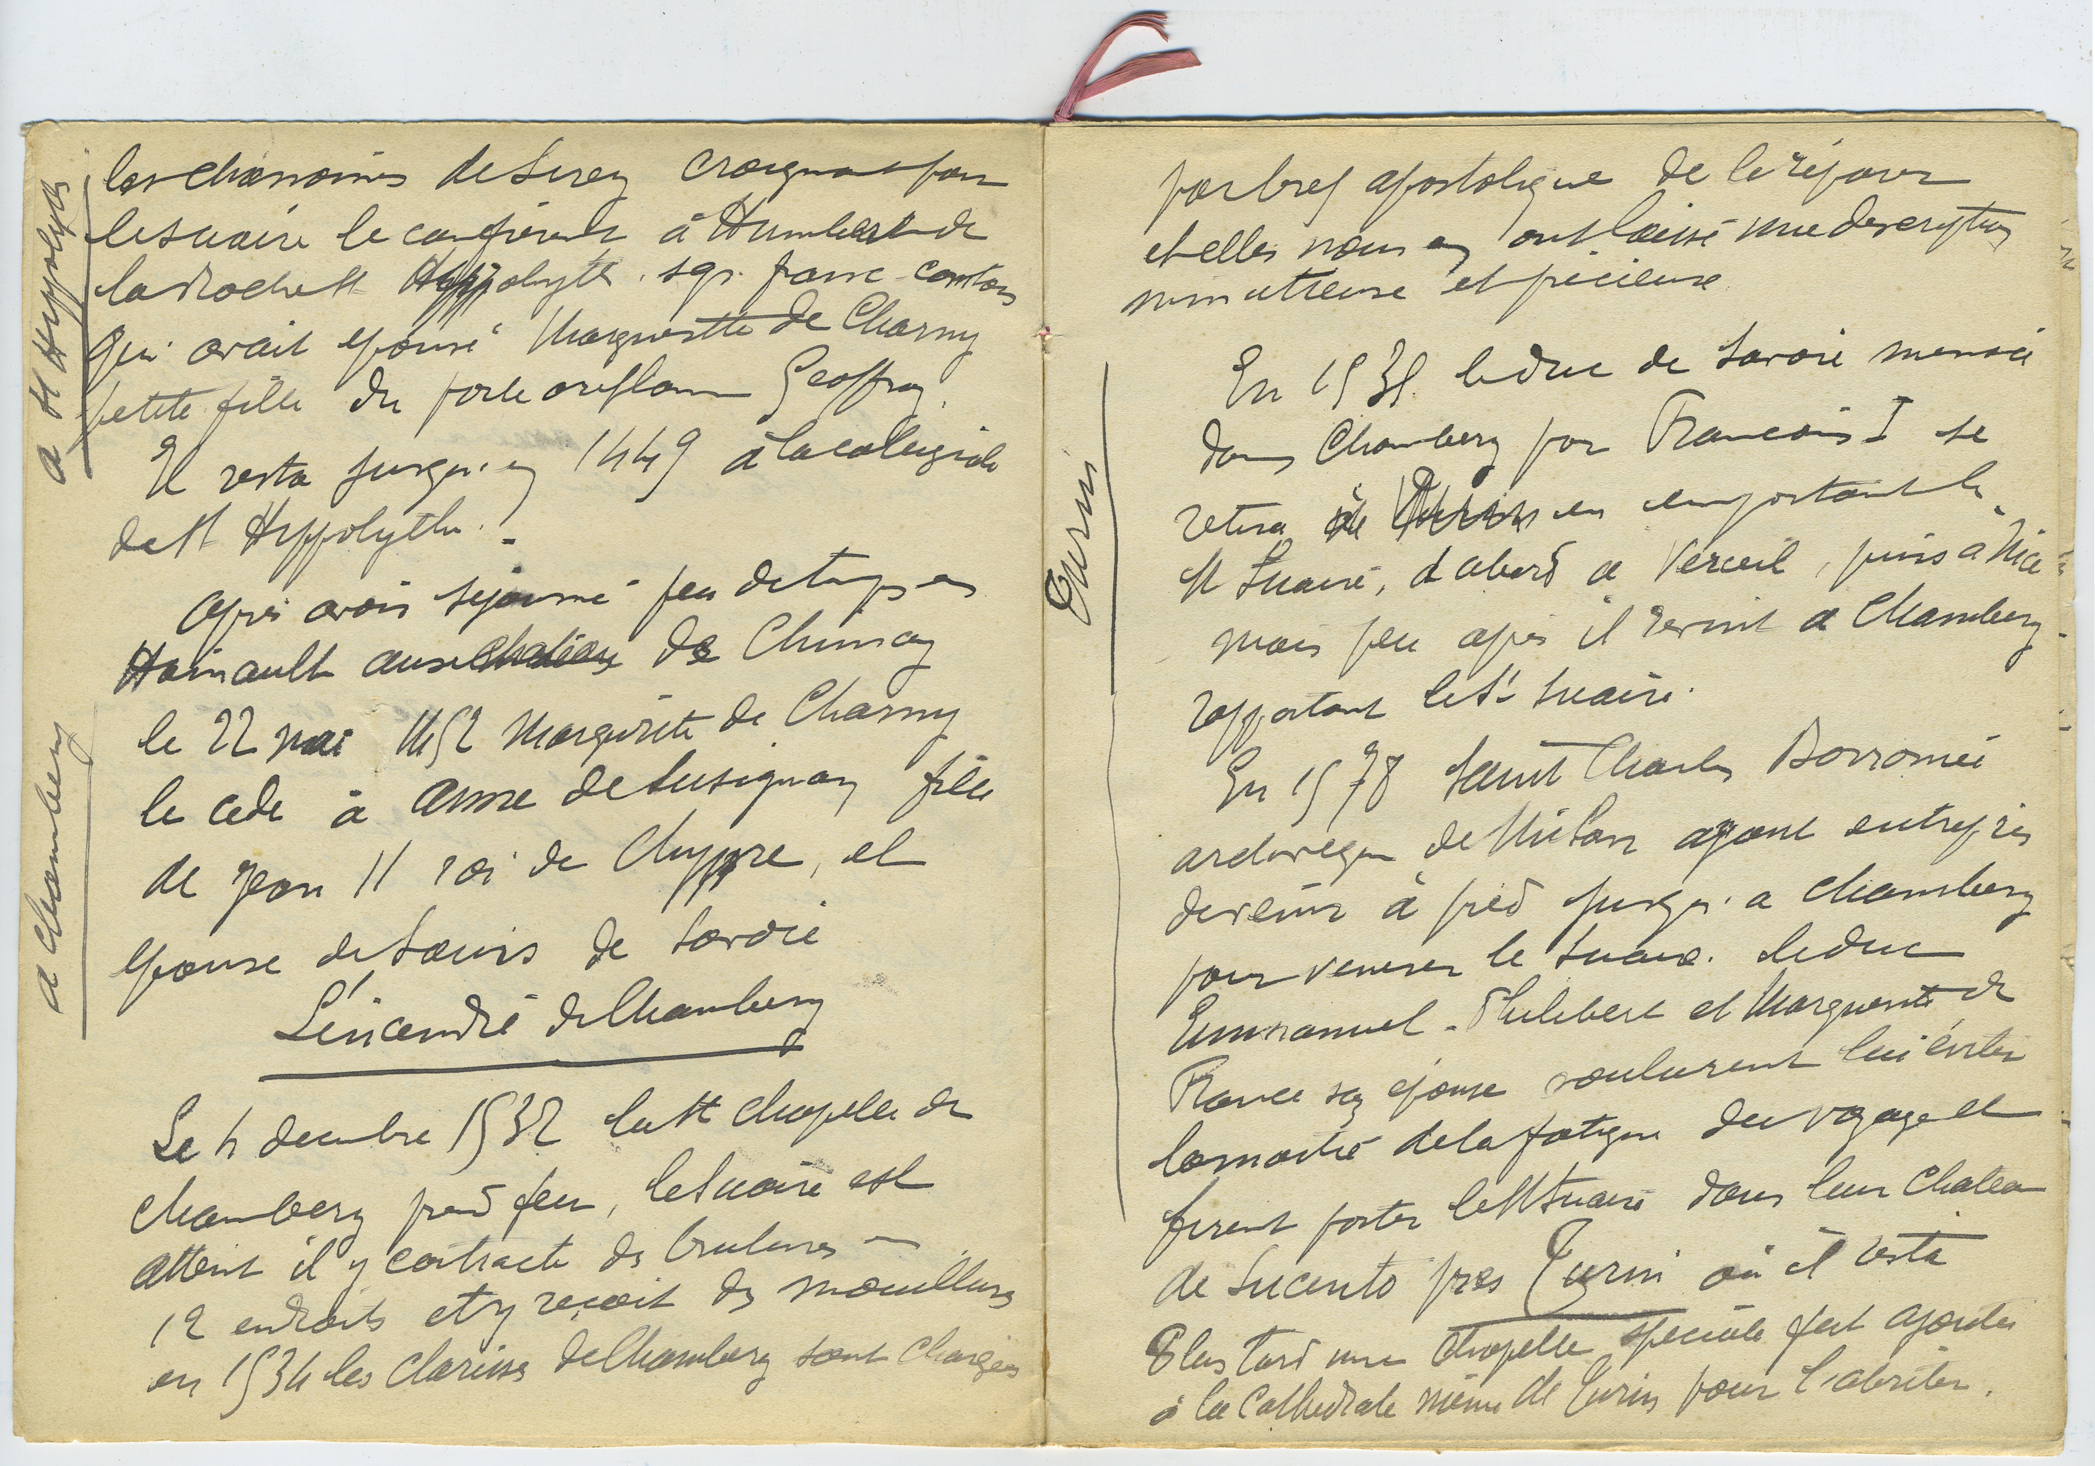 a St Hippolyte
les chanoines de Lirey craignant pour
le suaire le confièrent à Humbert de
la Rochett Hyppolyth. sgr. franc-comtois
qui avait épousé Margueritte de Charny
petite fille du porte oriflamme Geoffroy.
Il resta jusqu'en 1449 à la collegiale
de St Hyppolythe.
après avoir séjourné peu de temps en
Hainault au chateau de Chimay
a Chambery
le 22 mai 1452 Marguerite de Charny
le cede à Anne de Lusignan fille
de Jean II roi de Chyppre, et
épouse de Louis de Savoie
L'incendie de Chambery
Le 4 decembre 1532 la Ste Chapelle de
Chambery prend feu, le Suaire est
atteint il y contracte des brulures en
12 endroits et y reçoit des mouillures
en 1534 les Clarisses de Chambery sont chargées
par bref apostolique de le réparer
et elles nous en ont laissé une description
minutieuse et précieuse.
Turin
En 1535. le duc de Savoie menacé
dans Chambery par Francois I se
retira en emportant le
St Suaire, d'abord a Verceil, puis à Nice
mais peu après il revint a Chambery
rapportant le St Suaire.
En 1578 Saint Charles Borromée
archeveque de Milan ayant entrepris
de venir à pied jusqu'a Chambery
pour venerer le Suaire. le duc
Emmanuel-Philibert et Marguerite de
France son épouse voulurent lui éviter
la moitié de la fatigue du voyage et
firent porter le St Suaire dans leur chateau
de Lucento près Turin où il resta
Plus tard une chapelle spéciale fut ajoutée
à la Cathédrale même de Turin pour l'abriter.